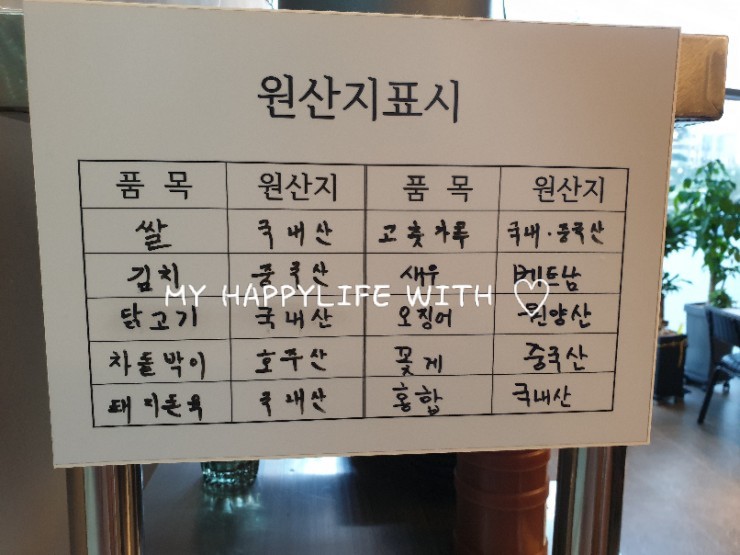 원산지표시
품 목 원산지 품 목 원산지
쌀 국내산 고춧가루 국내·중국산
김치 중국산 새우 베트남
MY HAPPYLIFE WITH ♡
닭고기 국내산 오징어 원양산
차돌박이 호주산 꽃게 중국산
돼지돈육 국내산 홍합 국내산